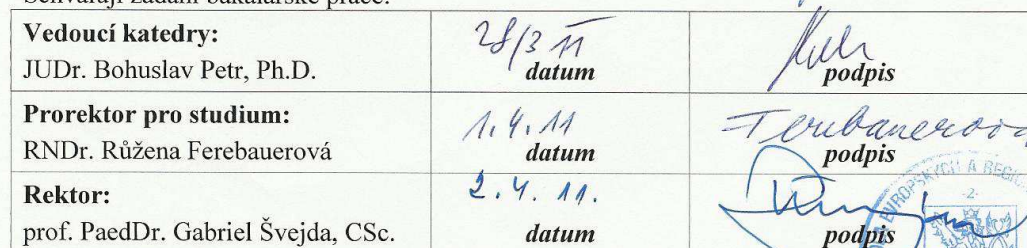 Schvalují zadání bakalářské práce:
Vedoucí katedry:
JUDr. Bohuslav Petr, Ph.D.
28/3 11
datum
podpis
Prorektor pro studium:
RNDr. Růžena Ferebauerová
1.4.11
datum
Ferebauerová
podpis
Rektor:
prof. PaedDr. Gabriel Švejda, CSc.
2.4.11.
datum
podpis
EVROPSKÝCH A
-2-